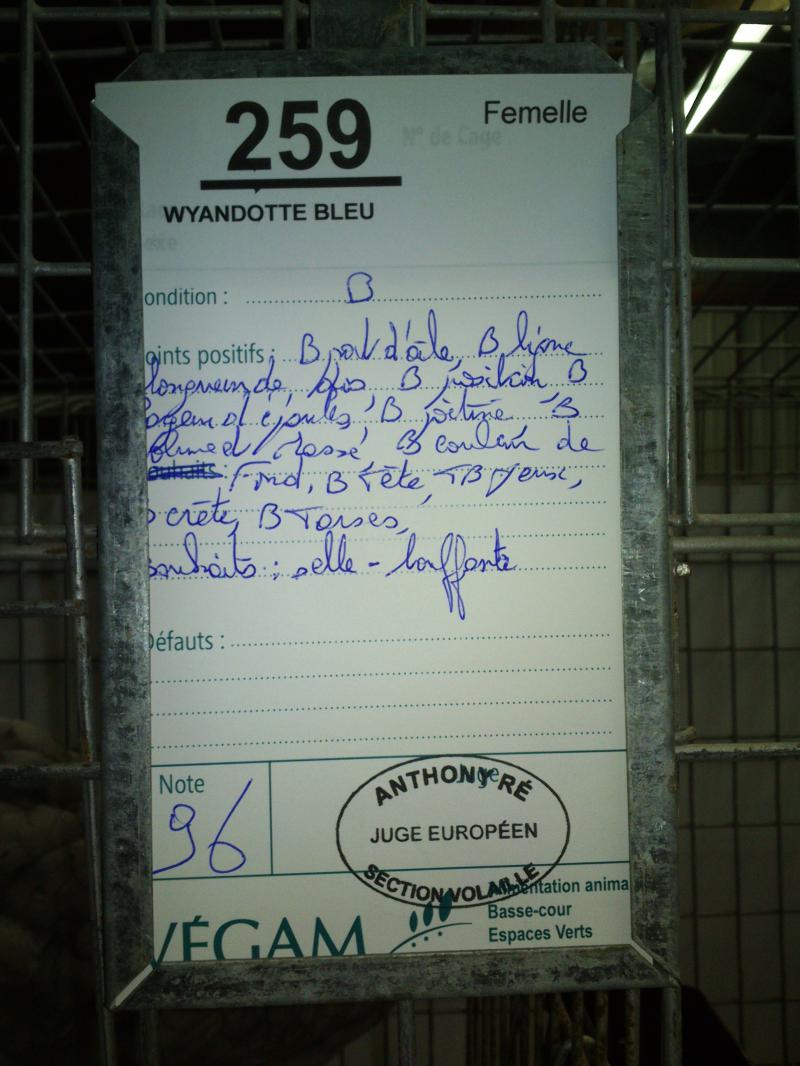 259
Femelle
N° de Cage
WYANDOTTE BLEU
ondition : B
oints positifs : B port d'aile, B ligne
longueur de, B position B
B poitrine B
B couleur de
ouhaits : Fond, B Tête, TB yeux,
crête, B Tarses,
souhaits : selle - bouffante
Défauts :
Note
Juge
96
ANTHONY RÉ
JUGE EUROPÉEN
SECTION VOLAILLE
VÉGAM
Alimentation anima
Basse-cour
Espaces Verts